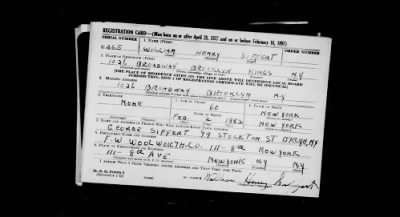 REGISTRATION CARD—(Men born on or after April 28, 1877 and on or before February 16, 1897)
SERIAL NUMBER 1. NAME (Print)
U465 WILLIAM HENRY SIFFERT
2. PLACE OF RESIDENCE (Print)
1026 BROADWAY BROOKLYN KINGS N.Y
[THE PLACE OF RESIDENCE GIVEN ON THE LINE ABOVE WILL DETERMINE LOCAL BOARD
JURISDICTION; LINE 2 OF REGISTRATION CERTIFICATE WILL BE IDENTICAL]
3. MAILING ADDRESS
1026 BROADWAY BROOKLYN N.Y
4. TELEPHONE 5. AGE IN YEARS 6. PLACE OF BIRTH
NONE 60 NEW YORK
DATE OF BIRTH
FEB 2 1882 NEW YORK
7. NAME AND ADDRESS OF PERSON WHO WILL ALWAYS KNOW YOUR ADDRESS
GEORGE SIFFERT 79 STOCKTON ST BKLYN, NY
8. EMPLOYER'S NAME AND ADDRESS
F W WOOLWORTH CO. 111 - 8th NEW YORK
9. PLACE OF EMPLOYMENT OR BUSINESS
111 - 8th AVE NEW YORK N.Y N.Y
I AFFIRM THAT I HAVE VERIFIED ABOVE ANSWERS AND THAT THEY ARE TRUE.
D. S. S. Form 1
William Henry Siffert